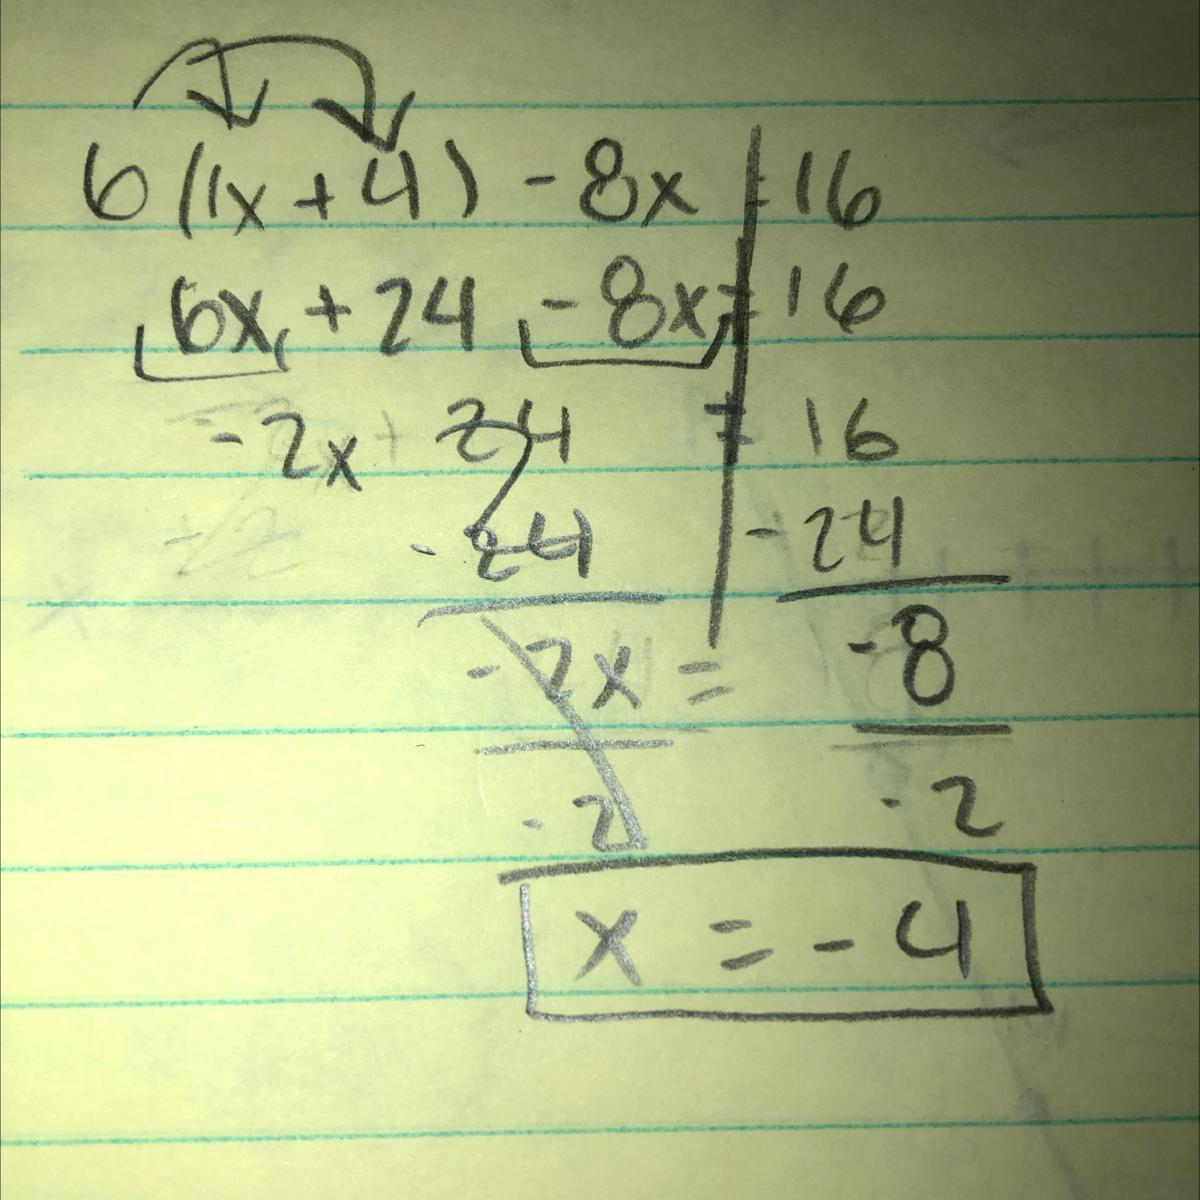 6(1x+4) - 8x = 16
6x + 24 - 8x = 16
-2x + 24 = 16
- 24 - 24
-2x = -8
-2 -2
x = -4